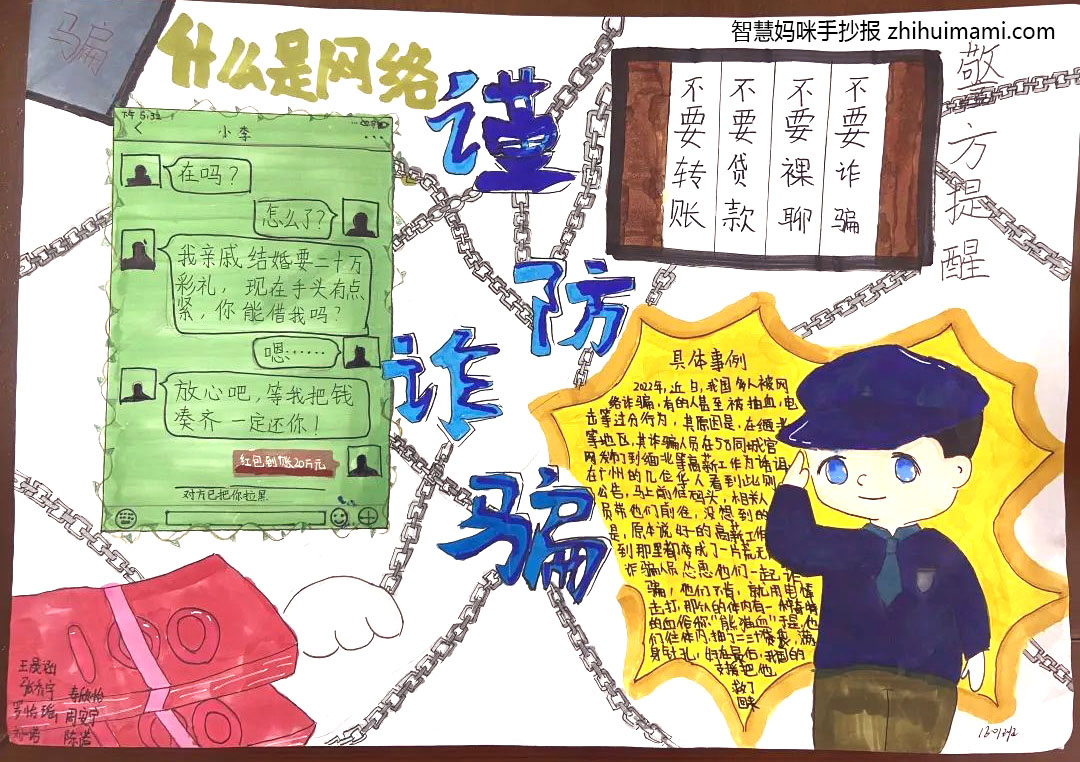 智慧妈咪手抄报 zhihuimami.com
骗
什么是网络
谨
防
诈
骗
下午 5:32
小李
在吗？
怎么了？
我亲戚结婚要二十万
彩礼，现在手头有点
紧，你能借我吗？
嗯……
放心吧，等我把钱
凑齐一定还你！
红包到账20万元
对方已把你拉黑
不要转账
不要贷款
不要裸聊
不要诈骗
敬方提醒
具体事例
2022年，近日，我国多人被网
络诈骗，有的人甚至被抽血，电
击等过分行为，其原因是，在缅北
等地区，其诈骗人员在58同城官
网发布了到缅北等高薪工作为诱饵
在广州的几位华人看到此则
公告，马上前往码头，相关人
员带他们前往，没想到的
是，原本说好的高薪工作
到那里都变成了一片荒无
诈骗人员怂恿他们一起诈
骗，他们不肯，就用电棍
击打，那人的体内有一种
的血俗称“熊猫血”于是，他
们往体内抽了二三十袋，满
身针孔，好在最后，我国的
支援把他
救了
回来